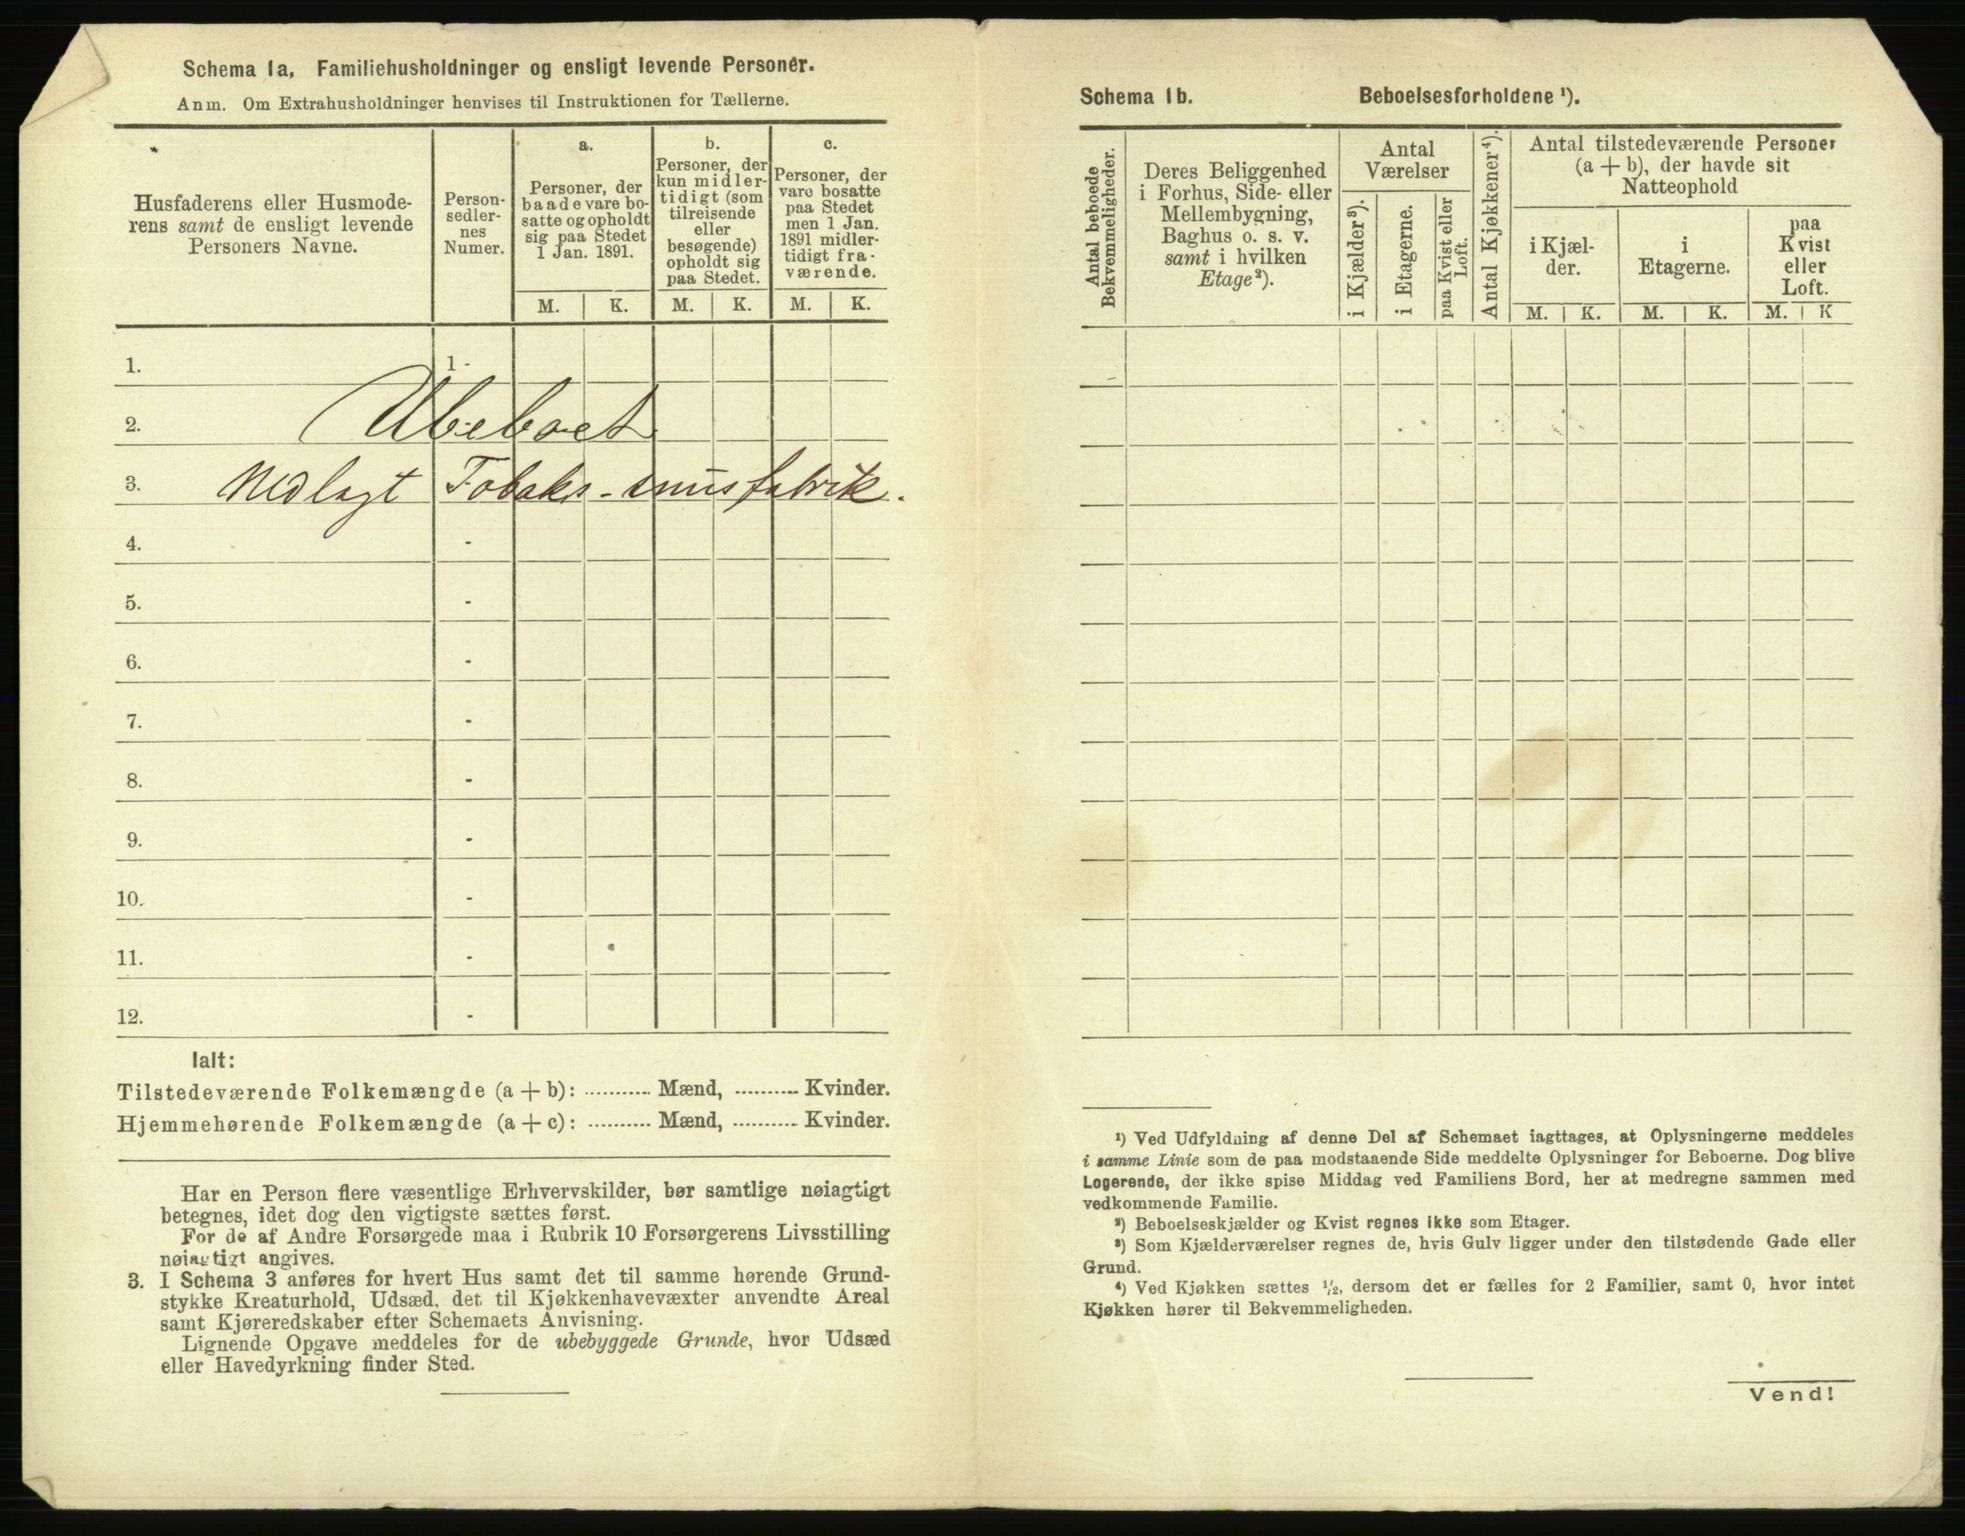 Schema 1a, Familiehusholdninger og ensligt levende Personer.
Anm. Om Extrahusholdninger henvises til Instruktionen for Tællerne.
Husfaderens eller Husmode-
rens samt de ensligt levende
Personers Navne.
Person-
sedler-
nes
Numer.
a.
Personer, der
baade vare bo-
satte og opholdt
sig paa Stedet
1 Jan. 1891.
M. K.
b.
Personer, der
kun midler-
tidigt (som
tilreisende
eller
besøgende)
opholdt sig
paa Stedet.
M. K.
c.
Personer, der
vare bosatte
paa Stedet
men 1 Jan.
1891 midler-
tidigt fra-
værende.
M. K.
1. 1 -
2. Ubeboet
3. Nedlagt Tobaks-snusfabrik.
4. -
5. -
6. -
7. -
8. -
9. -
10. -
11. -
12. -
Ialt:
Tilstedeværende Folkemængde (a + b): ........... Mænd, ........... Kvinder.
Hjemmehørende Folkemængde (a + c): ........... Mænd, ........... Kvinder.
Har en Person flere væsentlige Erhvervskilder, bør samtlige nøiagtigt
betegnes, idet dog den vigtigste sættes først.
For de af Andre Forsørgede maa i Rubrik 10 Forsørgerens Livsstilling
nøiagtigt angives.
3. I Schema 3 anføres for hvert Hus samt det til samme hørende Grund-
stykke Kreaturhold, Udsæd, det til Kjøkkenhavevæxter anvendte Areal
samt Kjøreredskaber efter Schemaets Anvisning.
Lignende Opgave meddeles for de ubebyggede Grunde, hvor Udsæd
eller Havedyrkning finder Sted.
Schema 1b. Beboelsesforholdene ¹).
Antal beboede
Bekvemmeligheder.
Deres Beliggenhed
i Forhus, Side- eller
Mellembygning,
Baghus o. s. v.
samt i hvilken
Etage²).
Antal
Værelser
i Kjælder³).
i Etagerne.
paa Kvist eller
Loft.
Antal Kjøkkener⁴).
Antal tilstedeværende Personer
(a + b), der havde sit
Natteophold
i Kjæl-
der.
M. K.
i
Etagerne.
M. K.
paa
Kvist
eller
Loft.
M. K
¹) Ved Udfyldning af denne Del af Schemaet iagttages, at Oplysningerne meddeles
i samme Linie som de paa modstaaende Side meddelte Oplysninger for Beboerne. Dog blive
Logerende, der ikke spise Middag ved Familiens Bord, her at medregne sammen med
vedkommende Familie.
²) Beboelseskjælder og Kvist regnes ikke som Etager.
³) Som Kjælderværelser regnes de, hvis Gulv ligger under den tilstødende Gade eller
Grund.
⁴) Ved Kjøkken sættes ½, dersom det er fælles for 2 Familier, samt 0, hvor intet
Kjøkken hører til Bekvemmeligheden.
Vend!